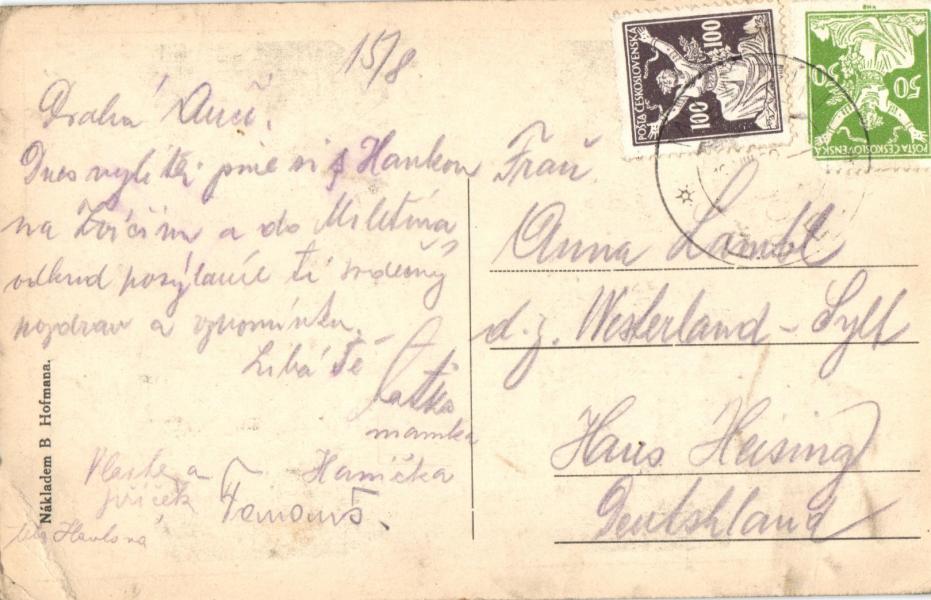 15/8
Drahá Anči.
Dnes vyletěli jsme si s Hankou
na Zvičinu a do Miletína
odkud posýláme ti srdečný
pozdrav a vzpomínku.
Líbá Tě
Matka
mamka
Vlasta a Hanička
Jiříček
Havlová
Nákladem B Hofmana.
POŠTA ČESKOSLOVENSKÁ
100 100
POŠTA ČESKOSLOVENSKÁ
50 50
Frau
Anna Lambl
d. z. Westerland - Sylt
Haus Heising
Deutshland